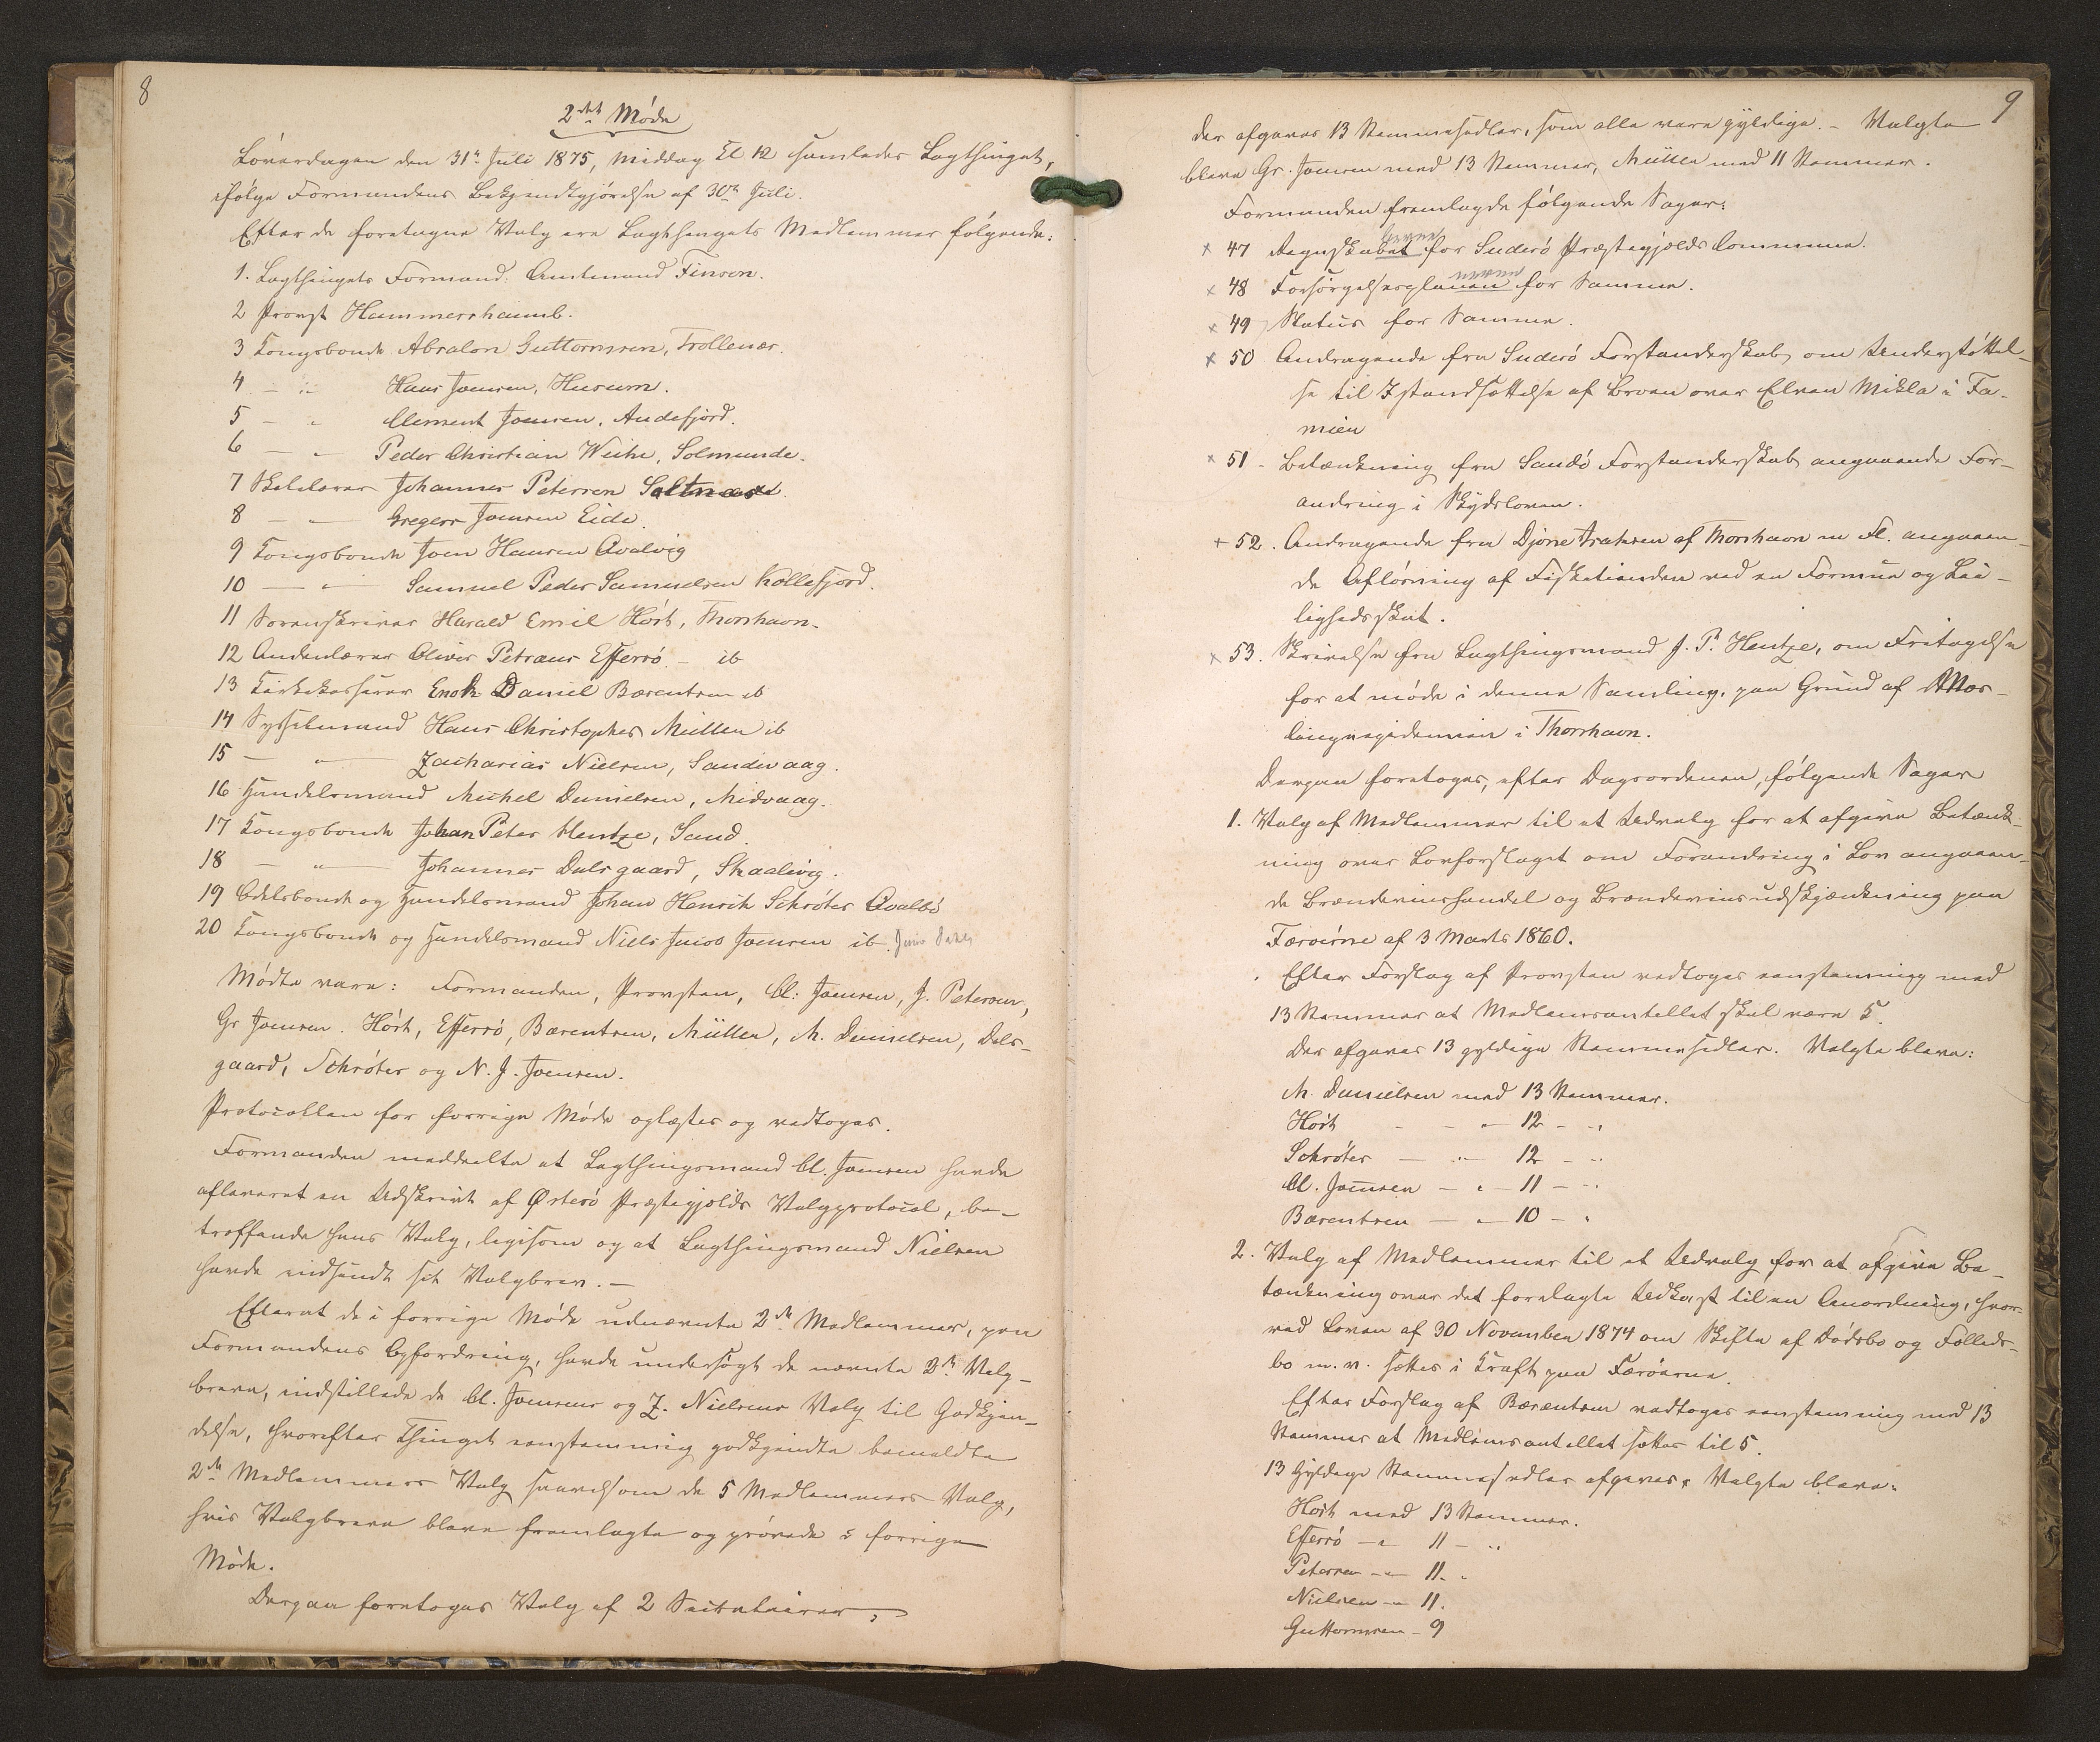 8
2det Møde
Løverdagen den 31te Juli 1875, Middag Kl 12 samledes Lagthinget,
ifølge Formandens Bekjendtgjørelse af 30te Juli.
Efter de foretagne Valg ere Lagthingets Medlemmer følgende:
1. Lagthingets Formand: Amtmand Finsen.
2 Provst Hammershaimb.
3 Kongsbonde Absalon Guttormsen, Trollenæs.
4 — " Hans Joensen, Husum.
5 — " Clement Joensen, Andefjord.
6 — " Peder Christian Weihe, Solmunde.
7 Skolelærer Johannes Petersen Saltnæs.
8 — " — Gregers Joensen Eide.
9 Kongsbonde Joen Hansen Qvalvig
10 — " — Samuel Peder Samuelsen Kollefjord.
11 Sorenskriver Harald Emil Høst, Thorshavn.
12 Andenlærer Oliver Petræus Effersø. — ib
13 Kirkekasserer Enok Daniel Bærentsen ib
14 Sysselmand Hans Christopher Müller ib
15 — " — Zacharias Nielsen, Sandevaag.
16 Handelsmand Michel Danielsen, Midvaag.
17 Kongsbonde Johan Peter Hentze, Sand.
18 — " — Johannes Dalsgaard, Skaalevig.
19 Odelsbonde og Handelsmand Johan Henrik Schrøter Qvalbø
20 Kongsbonde og Handelsmand Niels Juul Joensen ib.
Mødte vare: Formanden, Provsten, Cl: Joensen, J. Petersen,
Gr Joensen. Høst, Effersø, Bærentsen, Müller, M. Danielsen, Dals-
gaard, Schrøter og N. J. Joensen.
Protocollen for forrige Møde oplæstes og vedtoges.
Formanden meddeelte at Lagthingsmand Cl. Joensen havde
afleveret en Udskrivt af Østerø Præstegjælds Valgprotocol, be-
træffende hans Valg, ligesom og at Lagthingsmand Nielsen
havde indsendt sit Valgbrev. —
Efterat de i forrige Møde udnævnte 2de Medlemmer, paa
Formandens Opfordring, havde undersøgt de nævnte 2de Valg-
breve, indstillede de Cl. Joensens og Z. Nielsens Valg til Godkjen-
delse, hvorefter Thinget eenstemmig godkjendte bemeldte
2de Medlemmers Valg saavelsom de 5 Medlemmers Valg,
hvis Valgbreve bleve fremlagte og prøvede i forrige
Møde.
Derpaa foretoges Valg af 2 Secretairer;
9
Der afgaves 13 Stemmesedler, som alle vare gyldige. — Valgte
bleve Gr. Joensen med 13 Stemmer, Müller med 11 Stemmer.
Formanden fremlagde følgende Sager:
x 47 Regnskabet for Suderø Præstegjælds Commune.
x 48 Forsørgelsesplanen for Samme.
x 49 Status for Samme.
x 50 Andragende fra Suderø Forstanderskab, om Understøttel-
se til Istandsættelse af Broen over Elven Mikla i Fa-
mien
x 51 - Betænkning fra Sandø Forstanderskab angaaende For-
andring i Skydsloven.
+ 52. Andragende fra Djone Isaksen af Thorshavn m Fl. angaaen-
de Afløsning af Fisketienden ved en Formue og Lei-
lighedsskat.
x 53. Skrivelse fra Lagthingsmand J. P. Hentze, om Fritagelse
for at møde i denne Samling, paa Grund af Mæs-
lingepidemien i Thorshavn.
Derpaa foretoges, efter Dagsordenen, følgende Sager
1. Valg af Medlemmer til et Udvalg for at afgive Betænk-
ning over Lovforslaget om Forandring i Lov angaaen-
de Brændeviinshandel og Brændeviinsudskjænkning paa
Færøerne af 3 Marts 1860.
Efter Forslag af Provsten vedtoges eenstemmig med
13 Stemmer at Medlemsantallet skal være 5.
Der afgaves 13 gyldige Stemmesedler. Valgte bleve:
M. Danielsen med 13 Stemmer.
Høst — — " 12 — "
Schrøter — " — 12 — "
Cl. Joensen — " — 11 — "
Bærentsen — " — 10 — "
2. Valg af Medlemmer til et Udvalg for at afgive Be-
tænkning over det forelagte Udkast til en Anordning, hvor-
ved Loven af 30 November 1874 om Skifte af Dødsbo og Fælleds-
bo m. v. sættes i Kraft paa Færøerne.
Efter Forslag af Bærentsen vedtoges eenstemmig med 13
Stemmer at Medlemsantallet sættes til 5.
13 Gyldige Stemmesedler afgaves. Valgte bleve:
Høst med 13 Stemmer.
Effersø — " 11 — "
Petersen — " — 11. "
Nielsen — " 11.
Guttormsen — 9